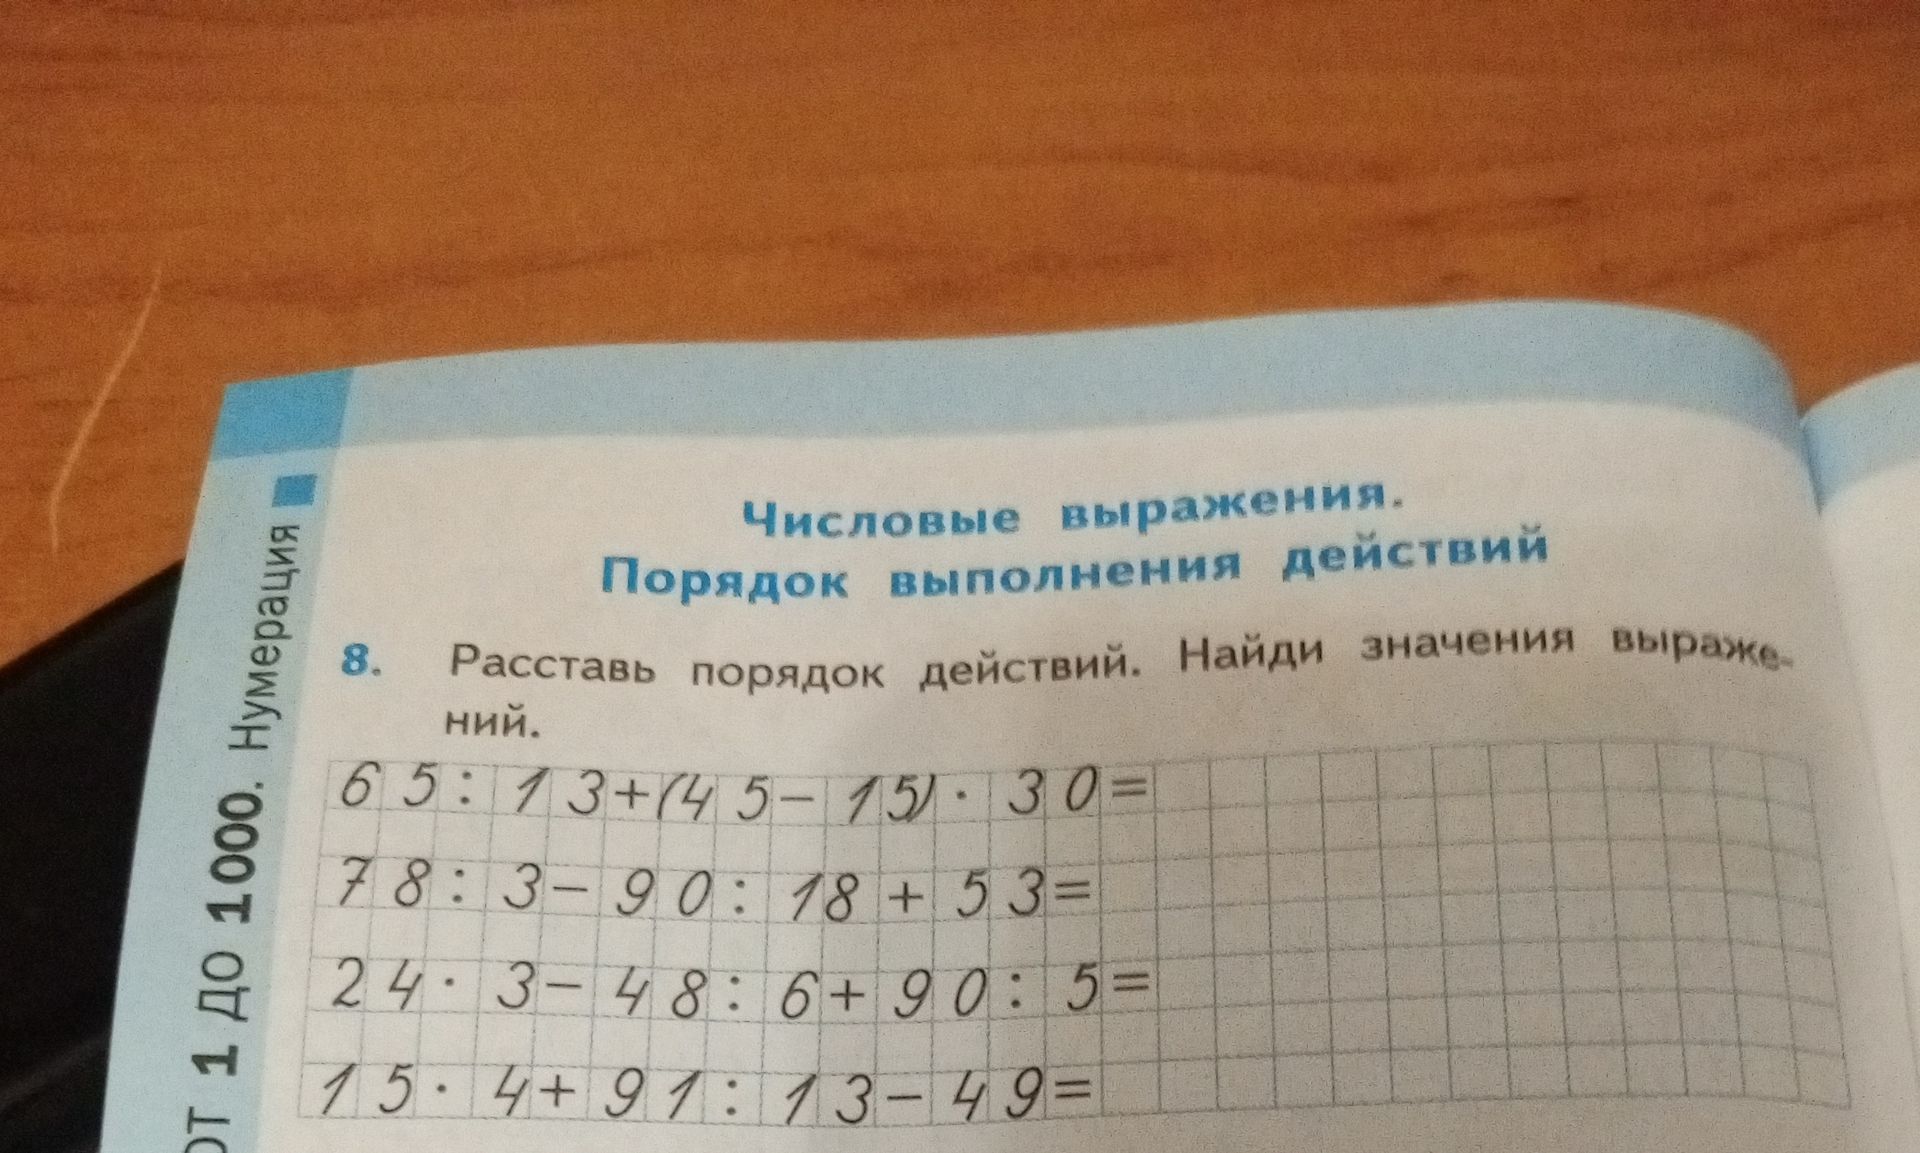 Числовые выражения.
Порядок выполнения действий
8. Расставь порядок действий. Найди значения выраже-
ний.
65:13+(45-15)·30=
78:3-90:18+53=
24·3-48:6+90:5=
15·4+91:13-49=
ОТ 1 ДО 1000. Нумерация